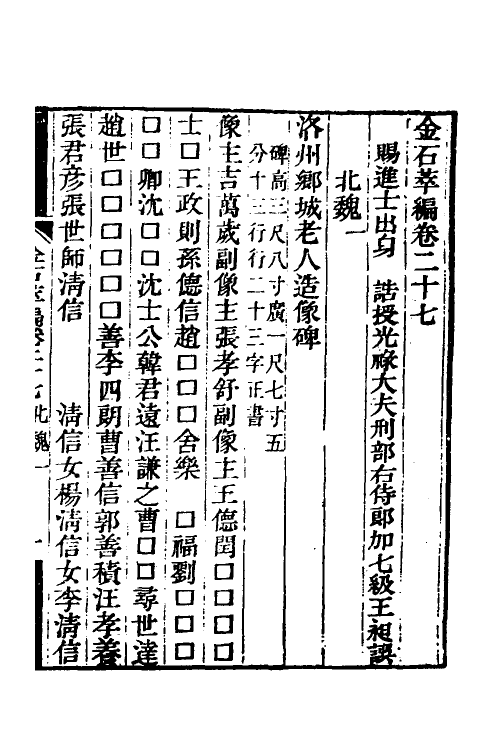 金石萃編卷二十七
賜進士出身　誥授光祿大夫刑部右侍郎加七級王昶譔
北魏一
洛州鄉城老人造像碑
碑高三尺八寸廣一尺七寸五
分十三行行二十三字正書
像主吉萬歲副像主張孝舒副像主王德閏□□□□
士□王政則孫德信趙□□□舍樂　□福劉□□□
□□卿沈□□沈士公韓君遠汪謙之曹□□尋世達
趙世□□□□□善李四朗曹善信郭善積汪孝養
張君彥張世師清信　　清信女楊清信女李清信
金石萃編卷二十七　北魏一　一